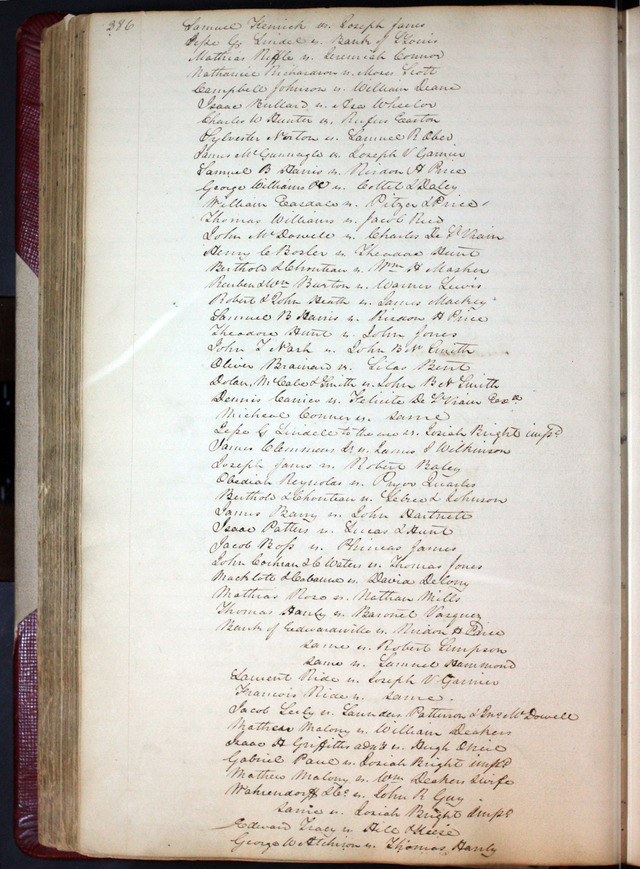 386
Samuel Kenrick vs. Joseph Jones
Jesse G. Lindel vs. Bank of St Louis
Mathias Riffle vs. Jeremiah Connor
Nathaniel Richardson vs. Moses Scott
Campbell Johnson vs. William Deane
Isaac Bullard vs. Asa Wheeler
Charles W Hunter vs. Rufus Easton
Sylvester Norton vs. Samuel R Ober
James McGunnagle vs. Joseph V Garnier
Samuel B Harris vs. Risdon H Price
George Williams vs. Collet & Daley
William Easdale vs. Pitzer & Price
Thomas Williams vs. Jacob Reed
John McDowell vs. Charles De St Vrain
Henry C Bosler vs. Theodore Hunt
Berthold & Chouteau vs. Wm H Masher
Reuben & Wm Burton vs. Warner Lewis
Robert & John Heath vs. James Mackey
Samuel B Harris vs. Risdon H Price
Theodore Hunt vs. John Jones
John T Nash vs. John B N Smith
Oliver Brainard vs. Silas Bent
Dolan, McCabe & Smith vs. John B N Smith
Dennis Carrier vs. Felicite De St Vrain Exx
Micheal Conner vs. same
Jesse G Lindell to the use vs. Josiah Bright impd
James Clemmens Jr vs. James J Wilkinson
Joseph Jones vs. Robert Baley
Obediah Reynolds vs. Pryor Quarles
Berthold & Chouteau vs. Johnson
James Barry vs. John Hartnett
Isaac Patters vs. Lucas & Hunt
Jacob Boss vs. Phineas James
John Cochran & C Waters vs. Thomas Jones
Macklott & Cabanne vs. David Delony
Mathias Rose vs. Nathan Mills
Thomas Hanly vs. Baronet Vasquez
Bank of Edwardsville vs. Risdon H Price
same vs. Robert Simpson
same vs. Samuel Hammond
Laurent Ride vs. Joseph V Garnier
Francois Ride vs. same.
Jacob Seely vs. Saunders Patterson & Jno McDowell
Mathew Malony vs. William Deakers
Isaac H Griffiths adms vs. Hugh ONeil
Gabriel Paul vs. Josiah Bright impd
Mathew Malony vs. Wm Deakers & wife
Wahrendorff & Co vs. John R Guy
same vs. Josiah Bright impd
Edward Tracy vs. Hill & Keese
George W Atchison vs. Thomas Hanly